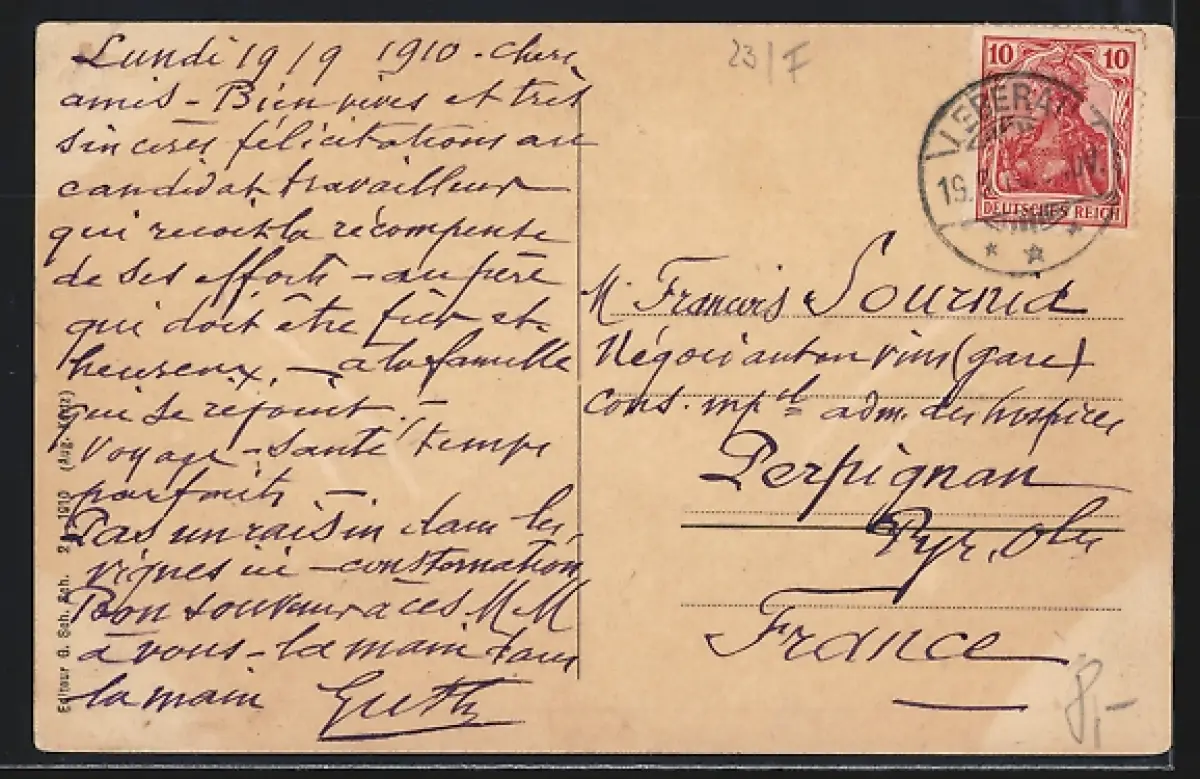 Lundi 19/9 1910 - chers
amis - Bien vives et très
sincères félicitations au
candidat travailleur
qui reçoit la récompense
de ses efforts - au père
qui doit être fier et
heureux, - à la famille
qui se réjouit. -
Voyage - santé, temps
parfaits. -
Pas un raisin dans les
vignes ici - consternation
Bon souvenir à ces MM
à vous - la main dans
la main
23/F
10 10
DEUTSCHES REICH
M. Francis Sournia
Négociant en vins (gare)
cons. mpal adm. des hospices
Perpignan
Pyr. Oles
France
8,-
Editeur G. Sch. 1910